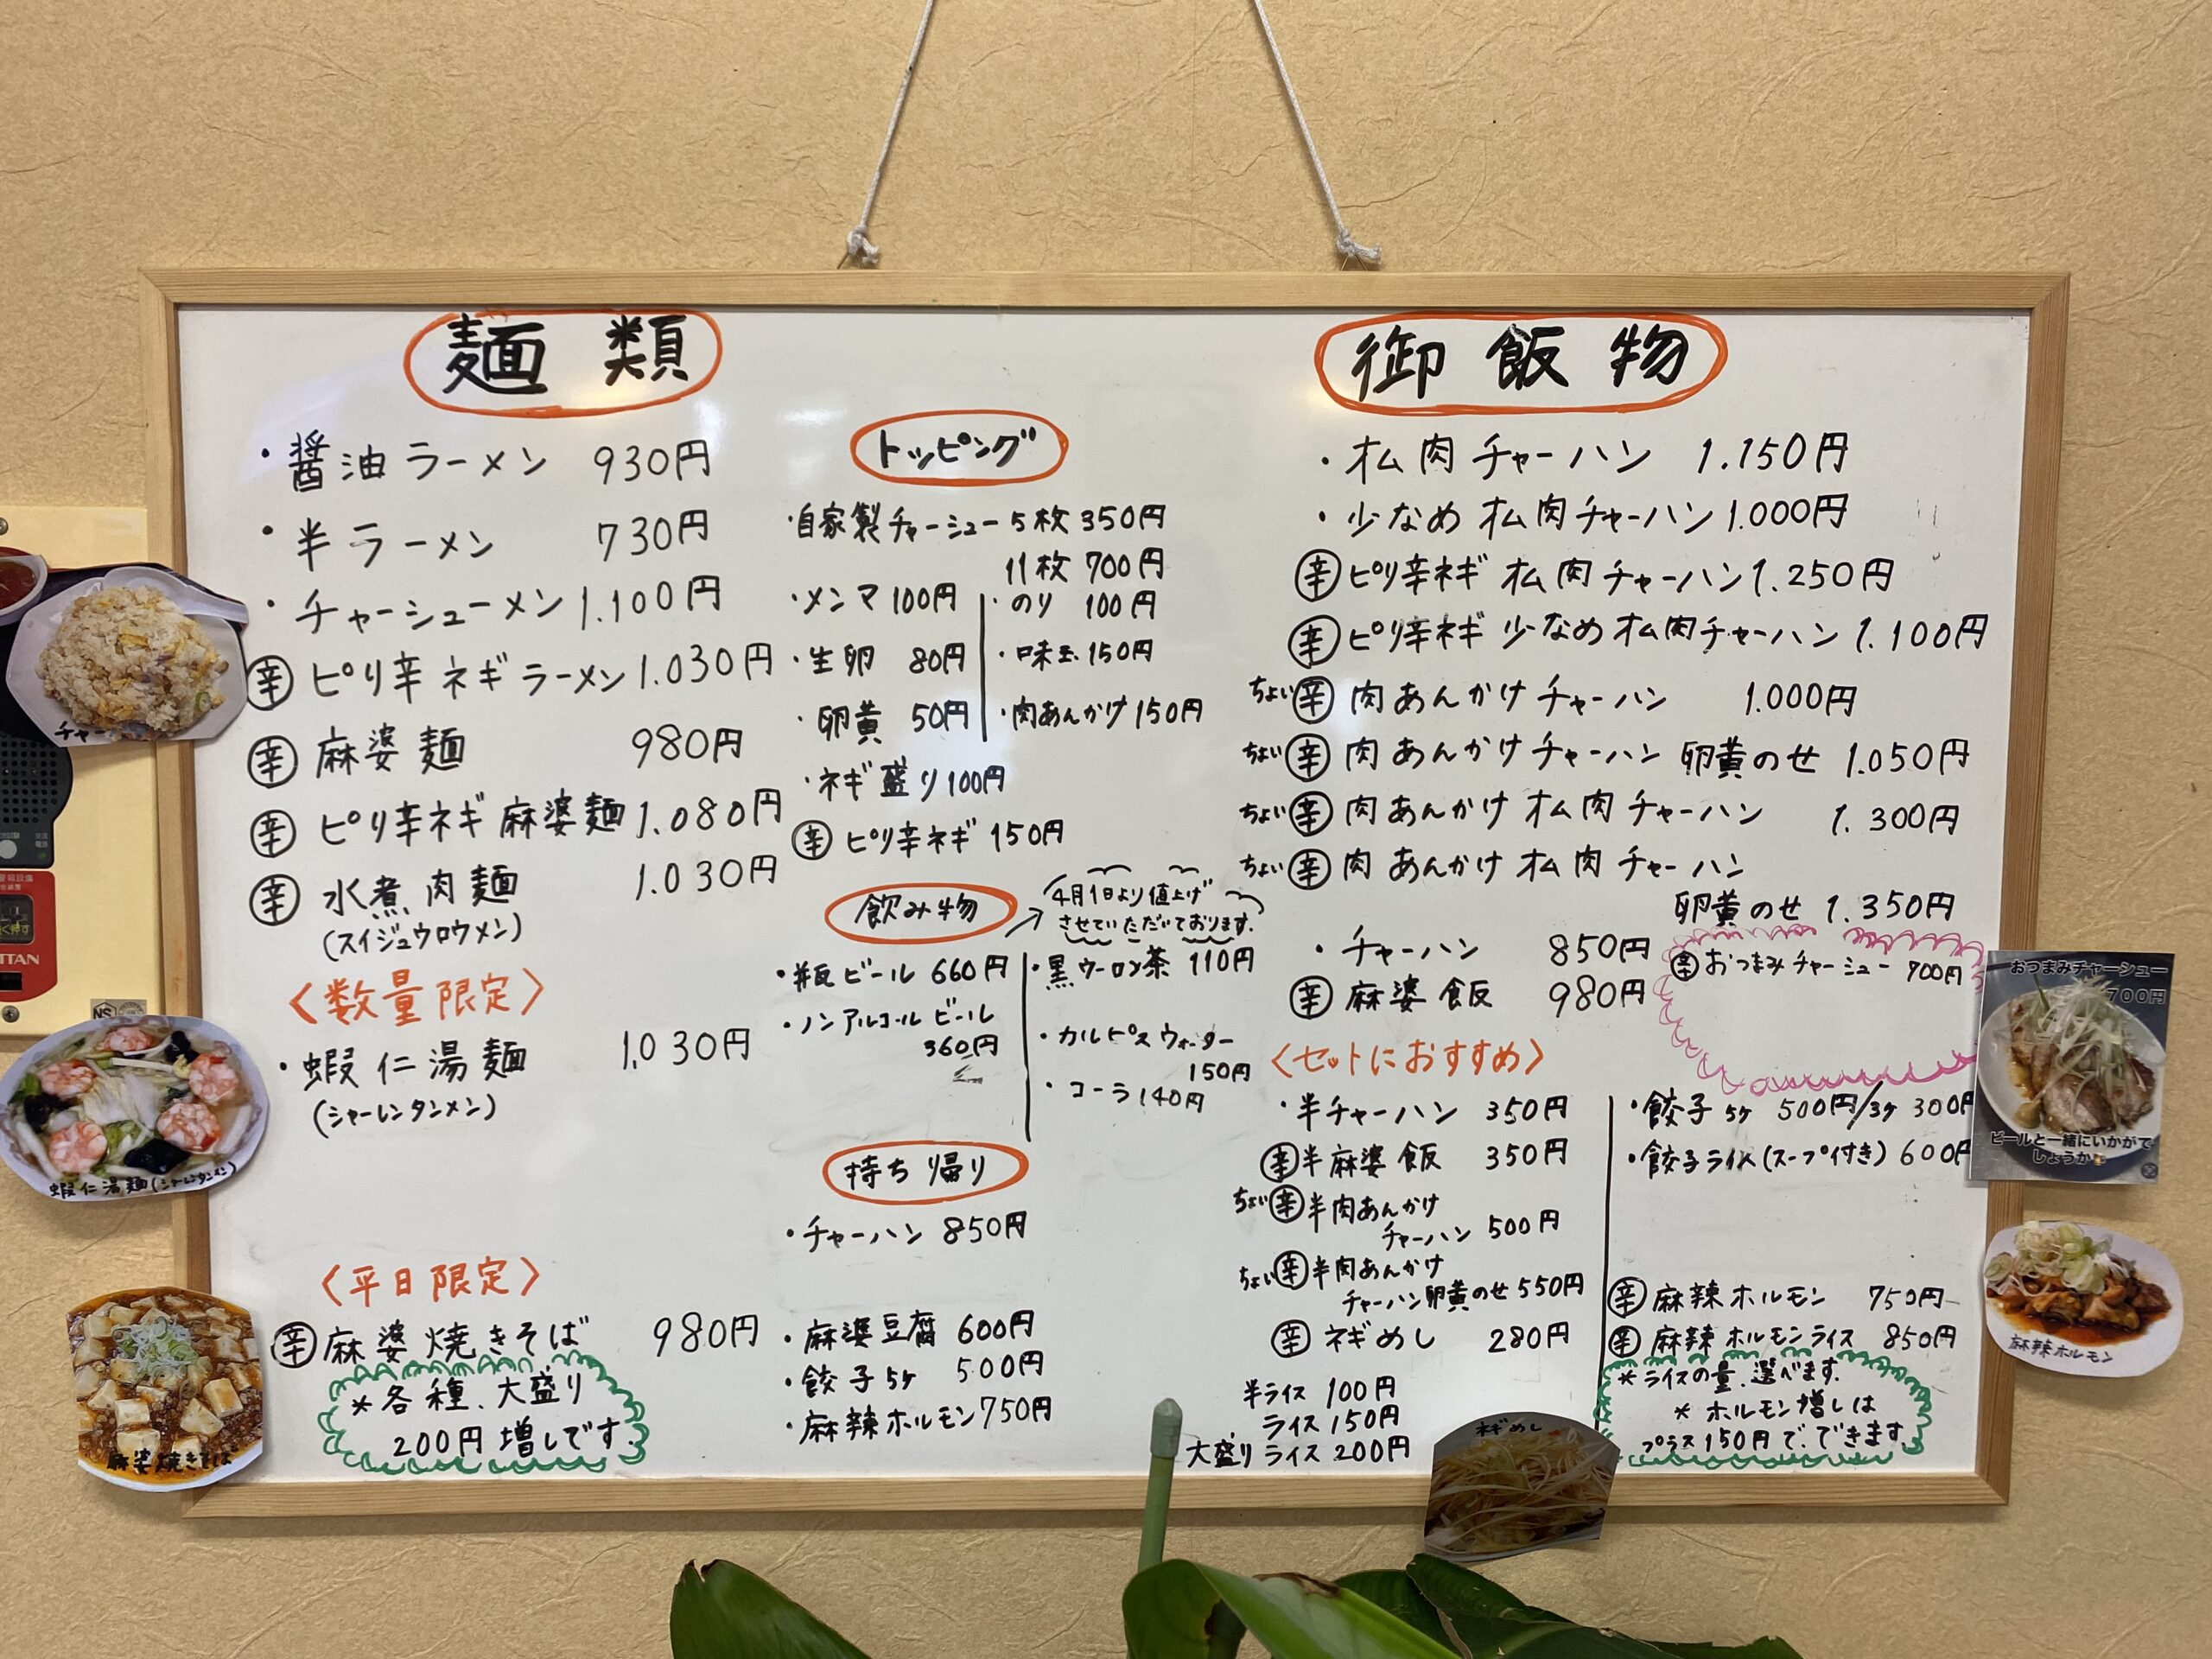 麺類
・醤油ラーメン 930円
・半ラーメン 730円
・チャーシューメン 1.100円
辛 ピリ辛ネギラーメン 1.030円
辛 麻婆麺 980円
辛 ピリ辛ネギ麻婆麺 1.080円
辛 水煮肉麺 1.030円
(スイジュウロウメン)
〈数量限定〉
・蝦仁湯麺 1.030円
(シャーレンタンメン)
〈平日限定〉
辛 麻婆焼きそば 980円
*各種、大盛り
200円増しです。
トッピング
・自家製チャーシュー 5枚 350円
11枚 700円
・メンマ 100円
・生卵 80円
・卵黄 50円
・ネギ盛り 100円
辛 ピリ辛ネギ 150円
・のり 100円
・味玉 150円
・肉あんかけ 150円
飲み物
4月1日より値上げ
させていただいております。
・瓶ビール 660円
・ノンアルコールビール
360円
・黒ウーロン茶 110円
・カルピスウォーター
150円
・コーラ 140円
持ち帰り
・チャーハン 850円
・麻婆豆腐 600円
・餃子5ケ 500円
・麻辣ホルモン 750円
御飯物
・オム肉チャーハン 1.150円
・少なめオム肉チャーハン 1.000円
辛 ピリ辛ネギオム肉チャーハン 1.250円
辛 ピリ辛ネギ少なめオム肉チャーハン 1.100円
ちょい辛 肉あんかけチャーハン 1.000円
ちょい辛 肉あんかけチャーハン 卵黄のせ 1.050円
ちょい辛 肉あんかけオム肉チャーハン 1.300円
ちょい辛 肉あんかけオム肉チャーハン
卵黄のせ 1.350円
・チャーハン 850円
辛 麻婆飯 980円
辛 おつまみチャーシュー 700円
〈セットにおすすめ〉
・半チャーハン 350円
辛 半麻婆飯 350円
ちょい辛 半肉あんかけ
チャーハン 500円
ちょい辛 半肉あんかけ
チャーハン卵黄のせ 550円
辛 ネギめし 280円
半ライス 100円
ライス 150円
大盛りライス 200円
・餃子5ケ 500円/3ケ 300円
・餃子ライス(スープ付き) 600円
辛 麻辣ホルモン 750円
辛 麻辣ホルモンライス 850円
*ライスの量、選べます。
*ホルモン増しは
プラス150円で、できます。
チャー
蝦仁湯麺(シャーレンタンメン)
麻婆焼きそば
おつまみチャーシュー
700円
ビールと一緒にいかがで
しょうか
麻辣ホルモン
ネギめし
NS
TTAN